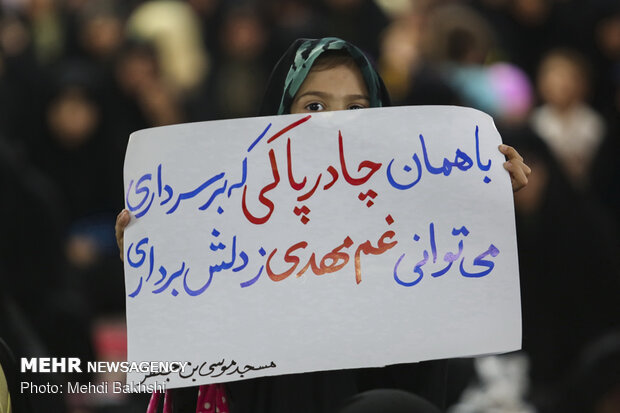 باهمان چادر پاکی که برسرداری
می توانی غم مهدی زدلش برداری
مسجد موسی بن جعفر
MEHR NEWSAGENCY
Photo: Mehdi Bakhshi